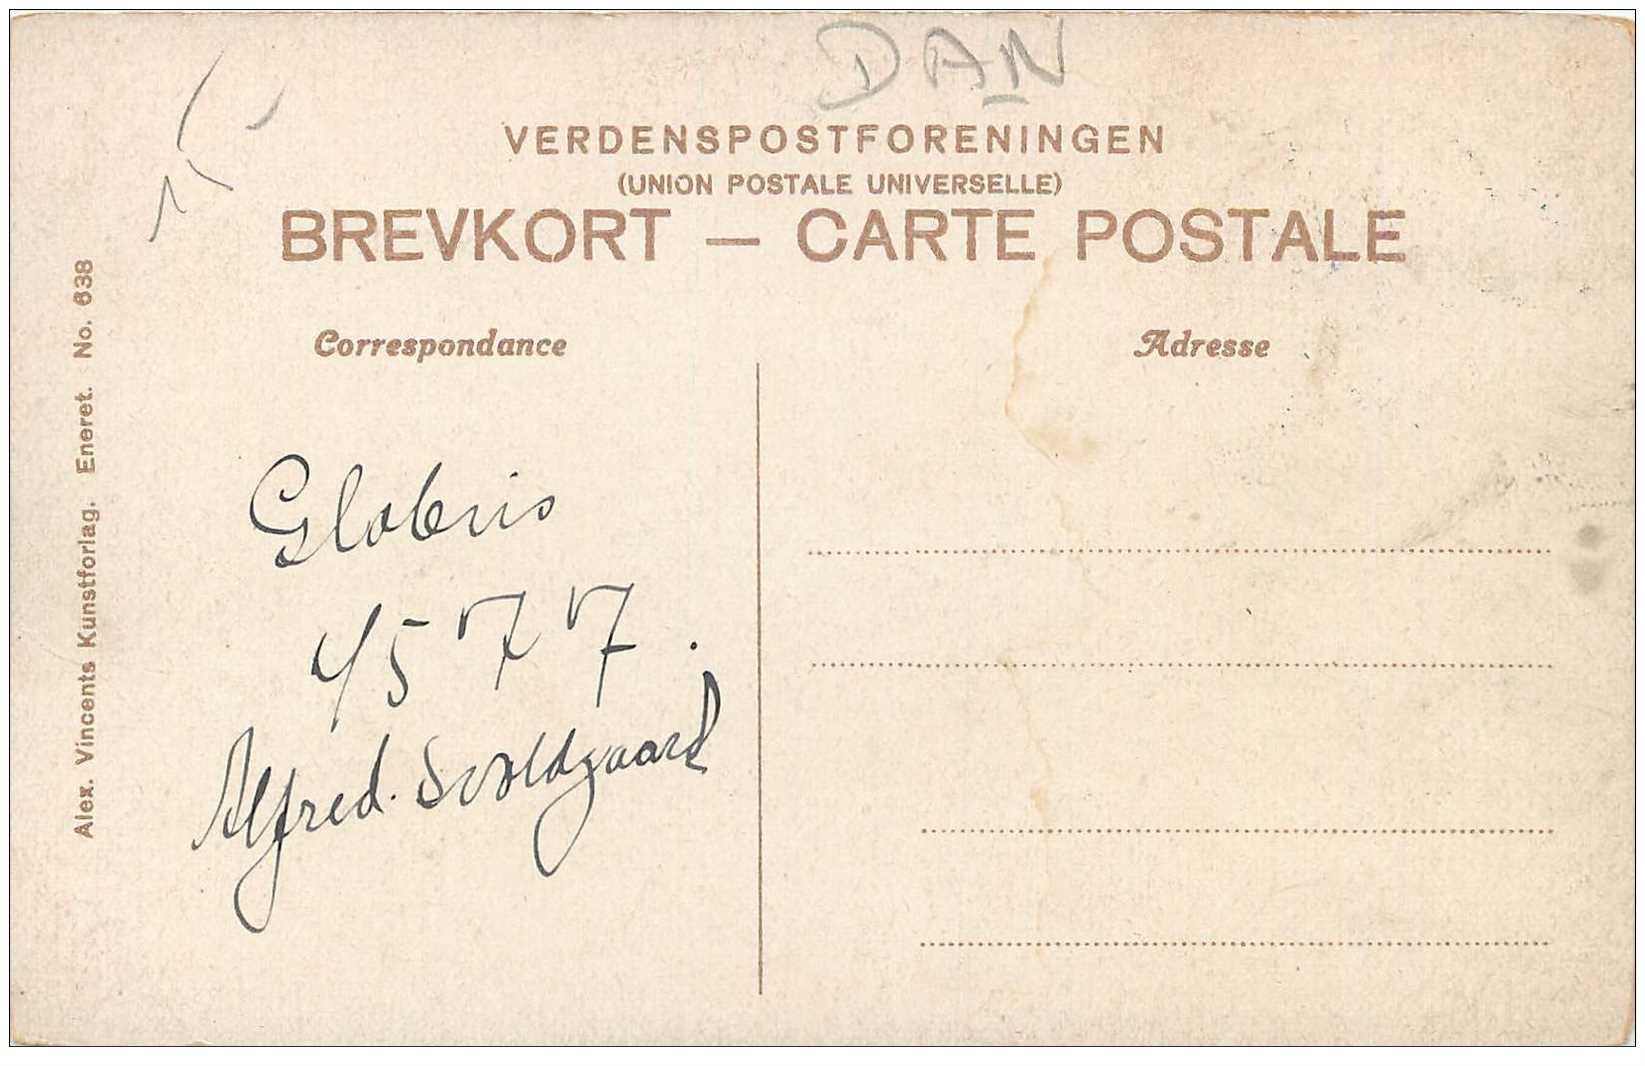 DAN
VERDENSPOSTFORENINGEN
(UNION POSTALE UNIVERSELLE)
BREVKORT — CARTE POSTALE
Correspondance
Adresse
Alex. Vincents Kunstforlag. Eneret. No. 638
4577.
Alfred